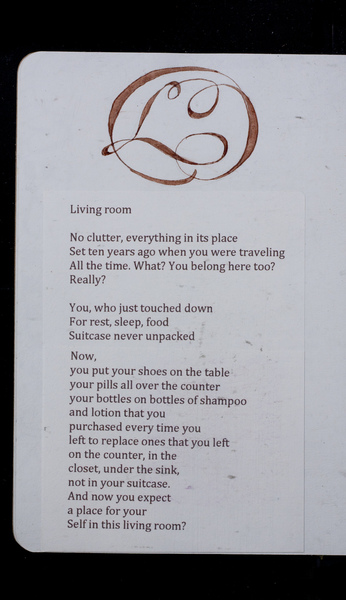 L
Living room
No clutter, everything in its place
Set ten years ago when you were traveling
All the time. What? You belong here too?
Really?
You, who just touched down
For rest, sleep, food
Suitcase never unpacked
Now,
you put your shoes on the table
your pills all over the counter
your bottles on bottles of shampoo
and lotion that you
purchased every time you
left to replace ones that you left
on the counter, in the
closet, under the sink,
not in your suitcase.
And now you expect
a place for your
Self in this living room?